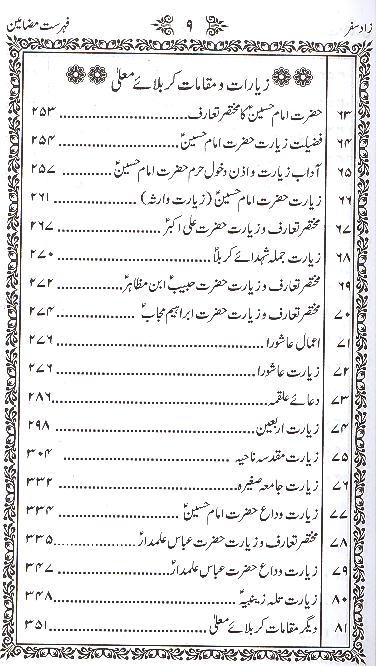 زادسفر ۹ فہرست مضامین
زیارات و مقامات کربلائے معلیٰ
۶۳ حضرت امام حسینؑ کا مختصر تعارف ۲۵۳
۶۴ فضیلت زیارت حضرت امام حسینؑ ۲۵۴
۶۵ آداب زیارت و اذن دخول حرم حضرت امام حسینؑ ۲۵۷
۶۶ زیارت حضرت امام حسینؑ (زیارت وارثہ) ۲۶۱
۶۷ مختصر تعارف و زیارت حضرت علی اکبرؑ ۲۶۷
۶۸ زیارت جملہ شہدائے کربلاؑ ۲۷۰
۶۹ مختصر تعارف و زیارت حضرت حبیبؑ ابن مظاہرؑ ۲۷۲
۷۰ مختصر تعارف و زیارت حضرت ابراہیم مجابؑ ۲۷۴
۷۱ اعمال عاشورا ۲۷۶
۷۲ زیارت عاشورا ۲۷۶
۷۳ دعائے علقمہ ۲۸۶
۷۴ زیارت اربعین ۲۹۸
۷۵ زیارت مقدسہ ناحیہ ۳۰۴
۷۶ زیارت جامعہ صغیرہ ۳۳۲
۷۷ زیارت وداع حضرت امام حسینؑ ۳۳۴
۷۸ مختصر تعارف و زیارت حضرت عباس علمدارؑ ۳۳۵
۷۹ زیارت وداع حضرت عباس علمدارؑ ۳۴۷
۸۰ زیارت تلہ زینبیہؑ ۳۴۸
۸۱ دیگر مقامات کربلائے معلیٰ ۳۵۱